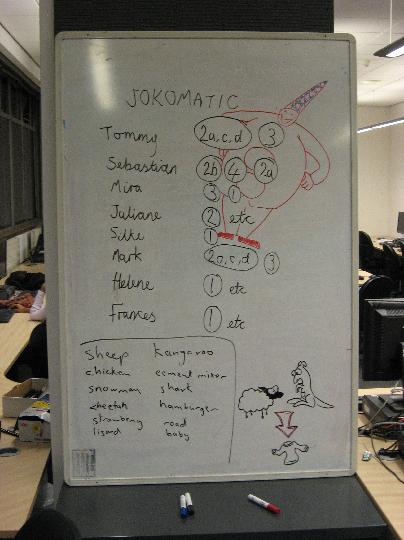 JOKOMATIC
Tommy 2a,c,d 3
Sebastian 2b 4 2a
Mira 3 1
Juliane 2 etc
Silke 1
Mark 2a,c,d 3
Helene 1 etc
Frances 1 etc
sheep kangaroo
chicken cement mixer
snowman shark
cheetah hamburger
strawberry road
lizard baby